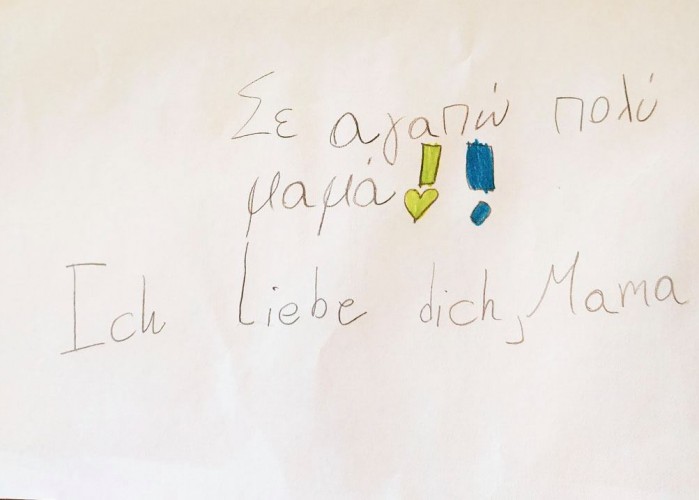 Σε αγαπώ πολύ
μαμά!!
Ich liebe dich, Mama